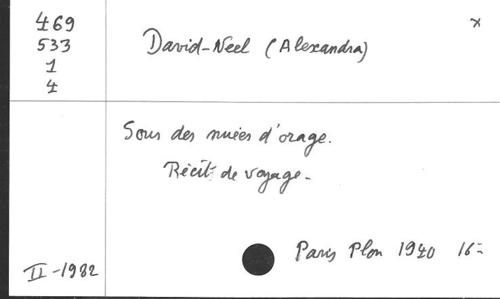 469
533
1
4
David-Neel (Alexandra)
x
Sous des nuées d'orage.
Récit de voyage-
Paris Plon 1940 16=
II-1982